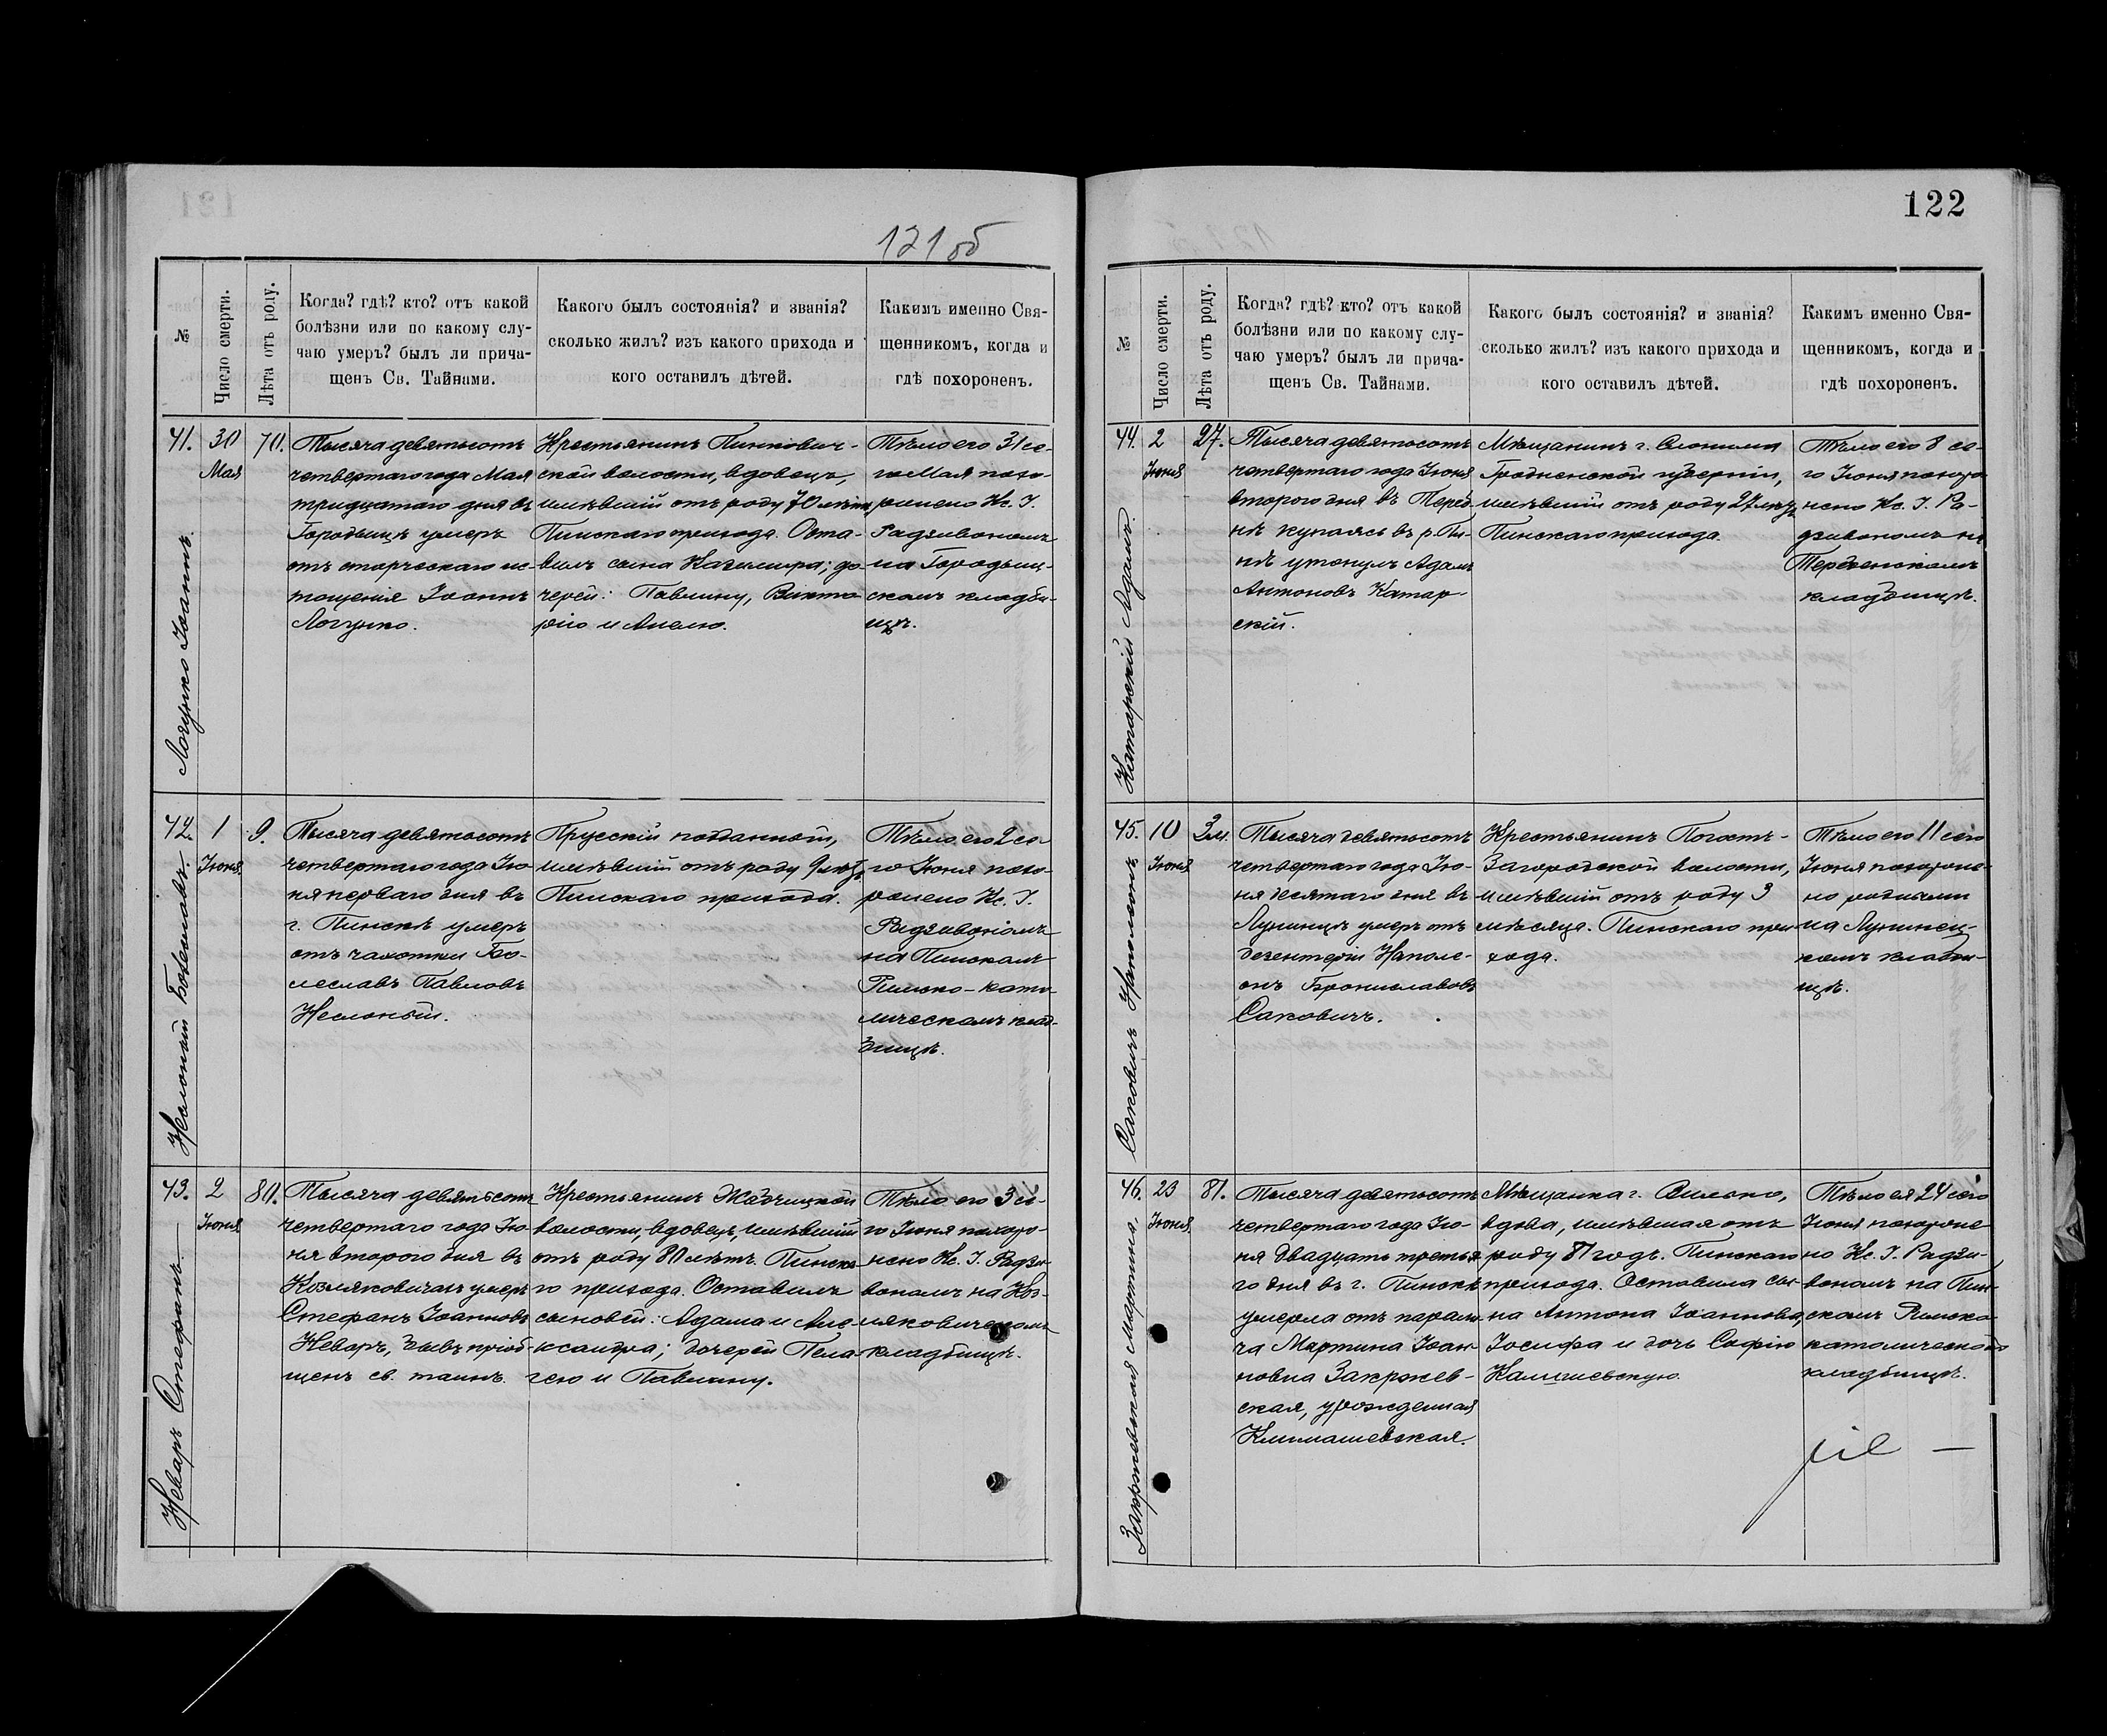 121об
№
Число смерти.
Лѣта отъ роду.
Когда? гдѣ? кто? отъ какой
болѣзни или по какому слу-
чаю умеръ? былъ ли прича-
щенъ Св. Тайнами.
Какого былъ состоянія? и званія?
сколько жилъ? изъ какого прихода и
кого оставилъ дѣтей.
Какимъ именно Свя-
щенникомъ, когда и
гдѣ похороненъ.
41.
Логунко Іоаннъ.
30
Мая
70.
Тысяча девятьсотъ
четвертаго года Мая
тридцатаго дня въ
Городищѣ умеръ
отъ старческаго ис-
тощенія Іоаннъ
Логунко.
Крестьянинъ Пинкович-
ской волости, вдовецъ,
имѣвшій отъ роду 70 лѣтъ,
Пинскаго прихода. Оста-
вилъ сына Казимира; до-
черей: Павлину, Викто-
рію и Анелю.
Тѣло его 31 се-
го Мая похо-
ронено Кс. І.
Радзивономъ
на Городищ-
скомъ кладби-
щѣ.
42.
Болеславъ.
1
Іюня
9.
Тысяча девятьсотъ
четвертаго года Ію-
ня перваго дня въ
г. Пинскѣ умеръ
отъ чахотки Бо-
леславъ Павловъ
Прусскій подданный,
имѣвшій отъ роду 9 лѣтъ,
Пинскаго прихода.
Тѣло его 2 се-
го Іюня похо-
ронено Кс. І.
Радзивономъ
на Пинскомъ
Римско-като-
лическомъ клад-
бищѣ.
43.
Неваръ Стефанъ
2
Іюня
80.
Тысяча девятьсотъ
четвертаго года Ію-
ня второго дня въ
Козляковичахъ умеръ
Стефанъ Іоанновъ
Неваръ, бывъ пріоб-
щенъ св. таинъ.
Крестьянинъ Жабчицкой
волости, вдовецъ, имѣвшій
отъ роду 80 лѣтъ. Пинска-
го прихода. Оставилъ
сыновей: Адама и Але-
ксандра; дочерей Пела-
гею и Павлину.
Тѣло его 3 се-
го Іюня похоро-
нено Кс. І. Радзи-
вономъ на Коз-
ляковичскомъ
кладбищѣ.
122
№
Число смерти.
Лѣта отъ роду.
Когда? гдѣ? кто? отъ какой
болѣзни или по какому слу-
чаю умеръ? былъ ли прича-
щенъ Св. Тайнами.
Какого былъ состоянія? и званія?
сколько жилъ? изъ какого прихода и
кого оставилъ дѣтей.
Какимъ именно Свя-
щенникомъ, когда и
гдѣ похороненъ.
44.
Катарскій Адамъ.
2
Іюня
27.
Тысяча девятьсотъ
четвертаго года Іюня
второго дня въ Тереб-
нѣ купаясь въ р. Пи-
нѣ утонулъ Адамъ
Антоновъ Катар-
скій.
Мѣщанинъ г. Слонима
Гродненской губерніи,
имѣвшій отъ роду 27 лѣтъ,
Пинскаго прихода.
Тѣло его 8 се-
го Іюня похоро-
нено Кс. І. Ра-
дзивономъ на
Теребенскомъ
кладбищѣ.
45.
Саковичъ Наполеонъ
10
Іюня
3м.
Тысяча девятьсотъ
четвертаго года Ію-
ня десятаго дня въ
Лунинцѣ умеръ отъ
дезентеріи Наполе-
онъ Брониславовъ
Саковичъ.
Крестьянинъ Погостъ-
Загородской волости,
имѣвшій отъ роду 3
мѣсяца. Пинскаго при-
хода.
Тѣло его 11 сего
Іюня похороне-
но родными
на Лунинец-
комъ кладби-
щѣ.
46.
Закржевская Мартина.
23
Іюня
81.
Тысяча девятьсотъ
четвертаго года Ію-
ня двадцать третья-
го дня въ г. Пинскѣ
умерла отъ парали-
ча Мартина Іоан-
новна Закржев-
ская, урожденная
Климашевская.
Мѣщанка г. Вильно,
вдова, имѣвшая отъ
роду 81 годъ. Пинскаго
прихода. Оставила сы-
на Антона Іоаннова,
Іосифа и дочь Софію
Тѣло ея 24 сего
Іюня похороне-
но Кс. І. Радзи-
вономъ на Пин-
скомъ Римско-
католическомъ
кладбищѣ.